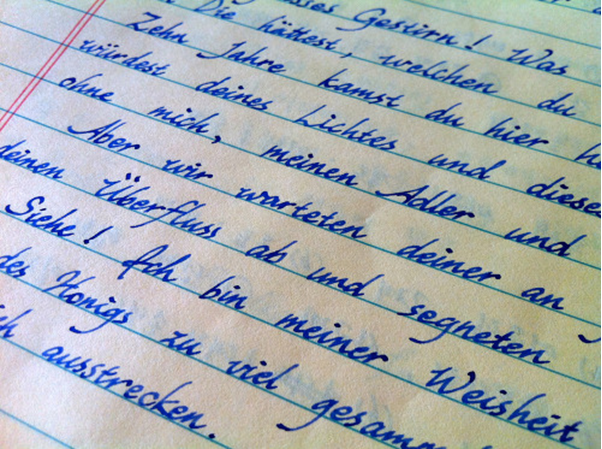 sses Gestirn! Was
Die hättest, welchen du
Zehn Jahre kamst du hier he
würdest deines Lichtes und dieses
ohne mich, meinen Adler und
Aber wir warteten deiner an
deinen Überfluss ab und segneten
Siehe! Ich bin meiner Weisheit
des Honigs zu viel gesamm
ch ausstrecken.